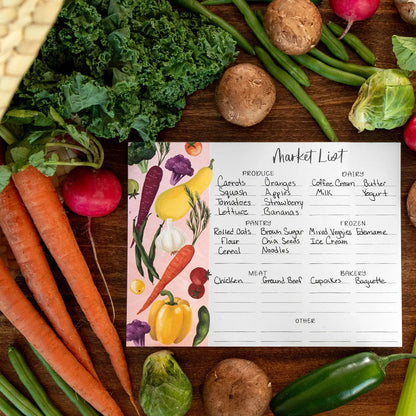 Market List
PRODUCE
Carrots Oranges
Squash Apples
Tomatoes Strawberry
Lettuce Bananas
DAIRY
Coffee Cream Butter
Milk Yogurt
PANTRY
Rolled Oats Brown Sugar
Flour Chia Seeds
Cereal Noodles
FROZEN
Mixed Veggies Edemame
Ice Cream
MEAT
Chicken Ground Beef
BAKERY
Cupcakes Baguette
OTHER